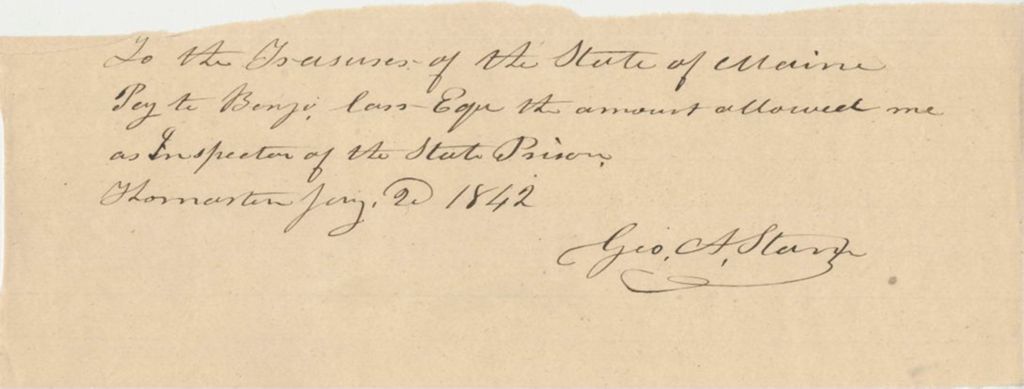 To the Treasurer of the State of Maine
Pay to Benj. Carr Esqr the amount allowed me
as Inspector of the State Prison.
Thomaston Jany. 2d 1842
Geo. A. Starr